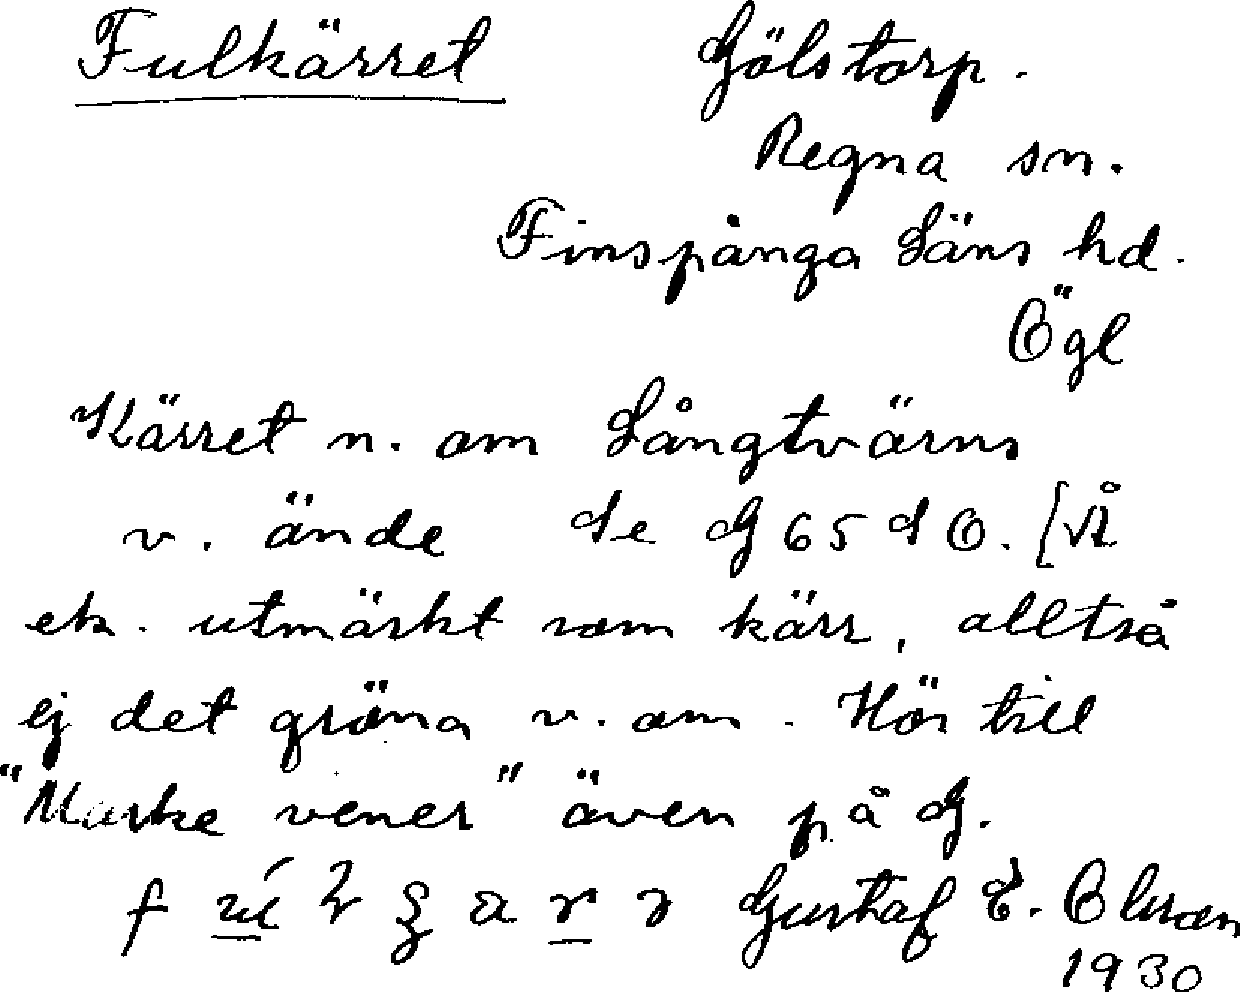 Fulkärret Gölstorp.
Regna sn.
Finspånga Läns hd.
Ögl
Kärret n. om Långtvärns
v. ände Se G 65 S O. [På
ek. utmärkt som kärr, alltså
ej det gröna v. om. Hör till
"Marke vener" även på G.
Gustaf E. Olsson
1930